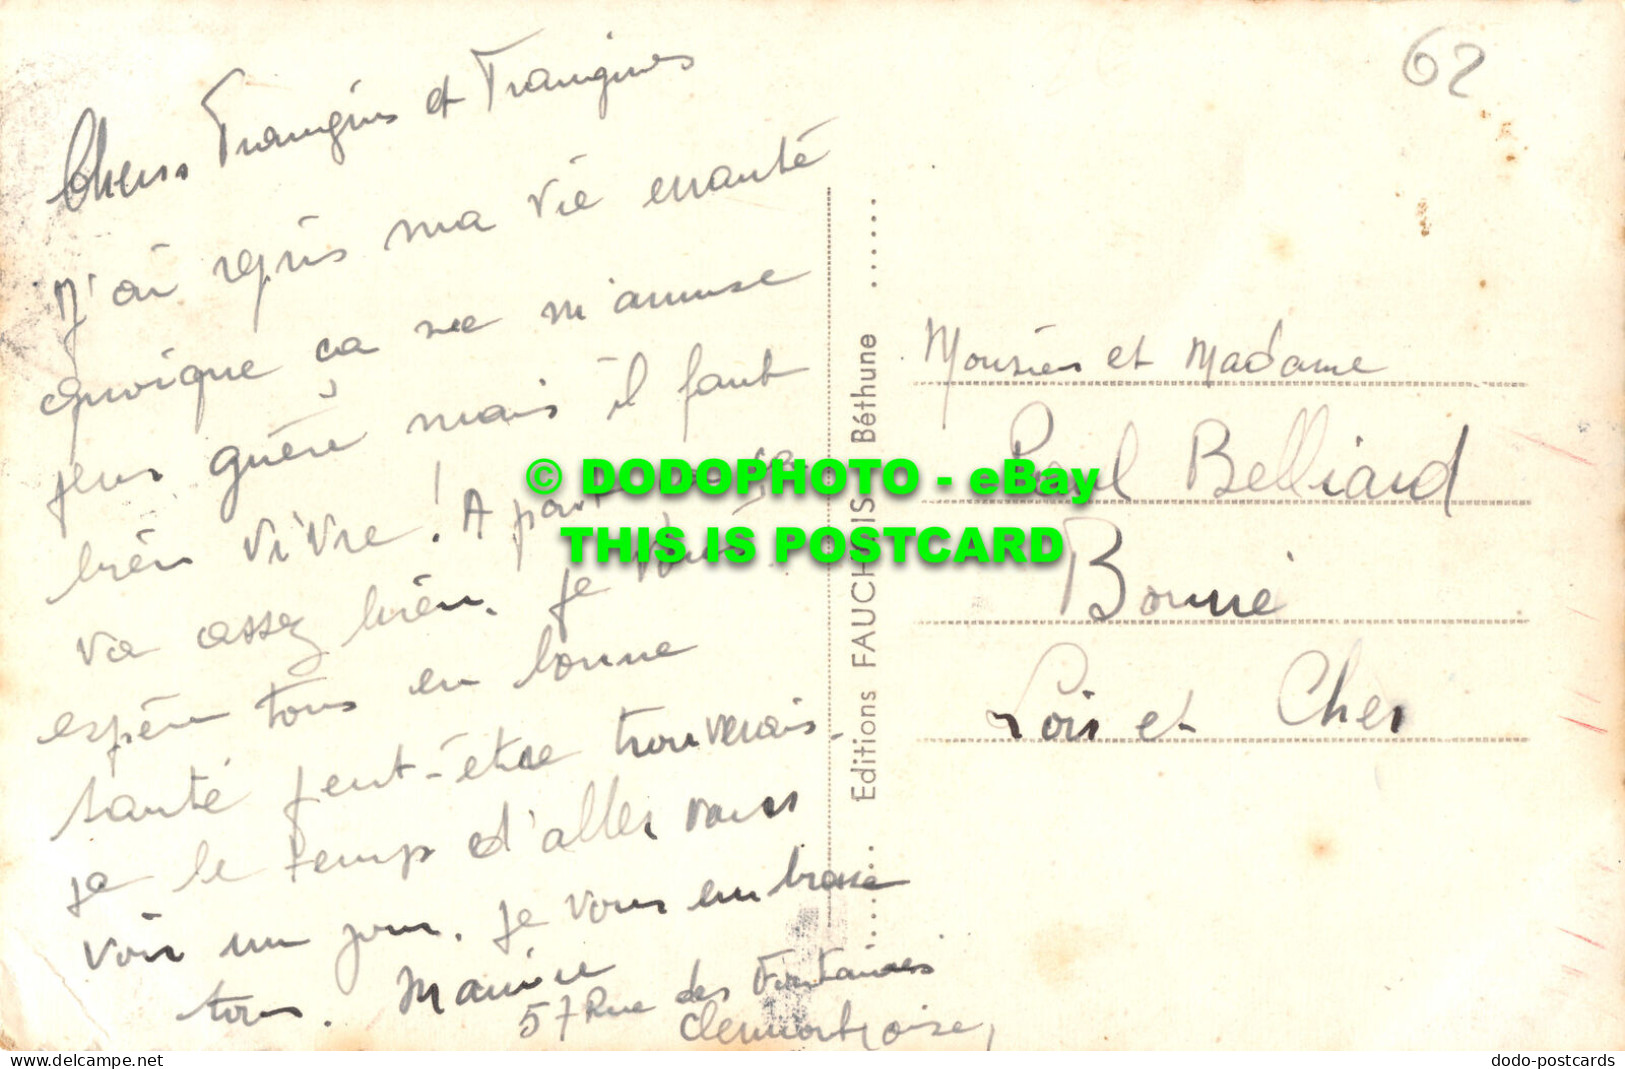 62
Chers Frangins et Frangines
J'ai repris ma vie errante
quoique ça ne m'amuse
pas guère mais il faut
bien vivre ! A part ça ça
va assez bien. Je vous
espère tous en bonne
santé peut-être trouverais-
je le temps d'aller vous
voir un jour. Je vous embrasse
tous. Maurice
57 Rue des Fontaines
Clermont, Oise,
Editions FAUCHOIS Béthune
Monsieur et Madame
Paul Belliard
Bourré
Loir et Cher
© DODOPHOTO - eBay
THIS IS POSTCARD
delcampe.net
dodo-postcards